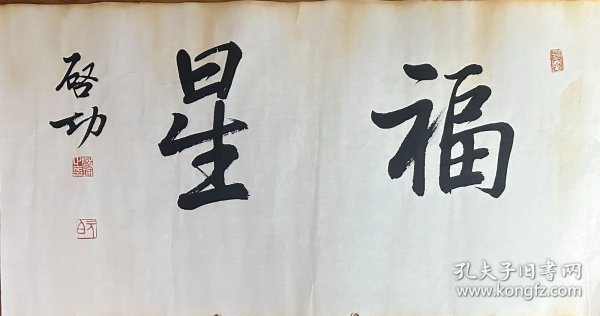 福星
启功
孔夫子旧書网
www.kongfz.com